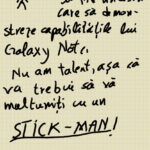 care să demon-
streze capabilitățile lui
Galaxy Note.
Nu am talent, așa că
va trebui să vă
mulțumiți cu un
STICK-MAN!